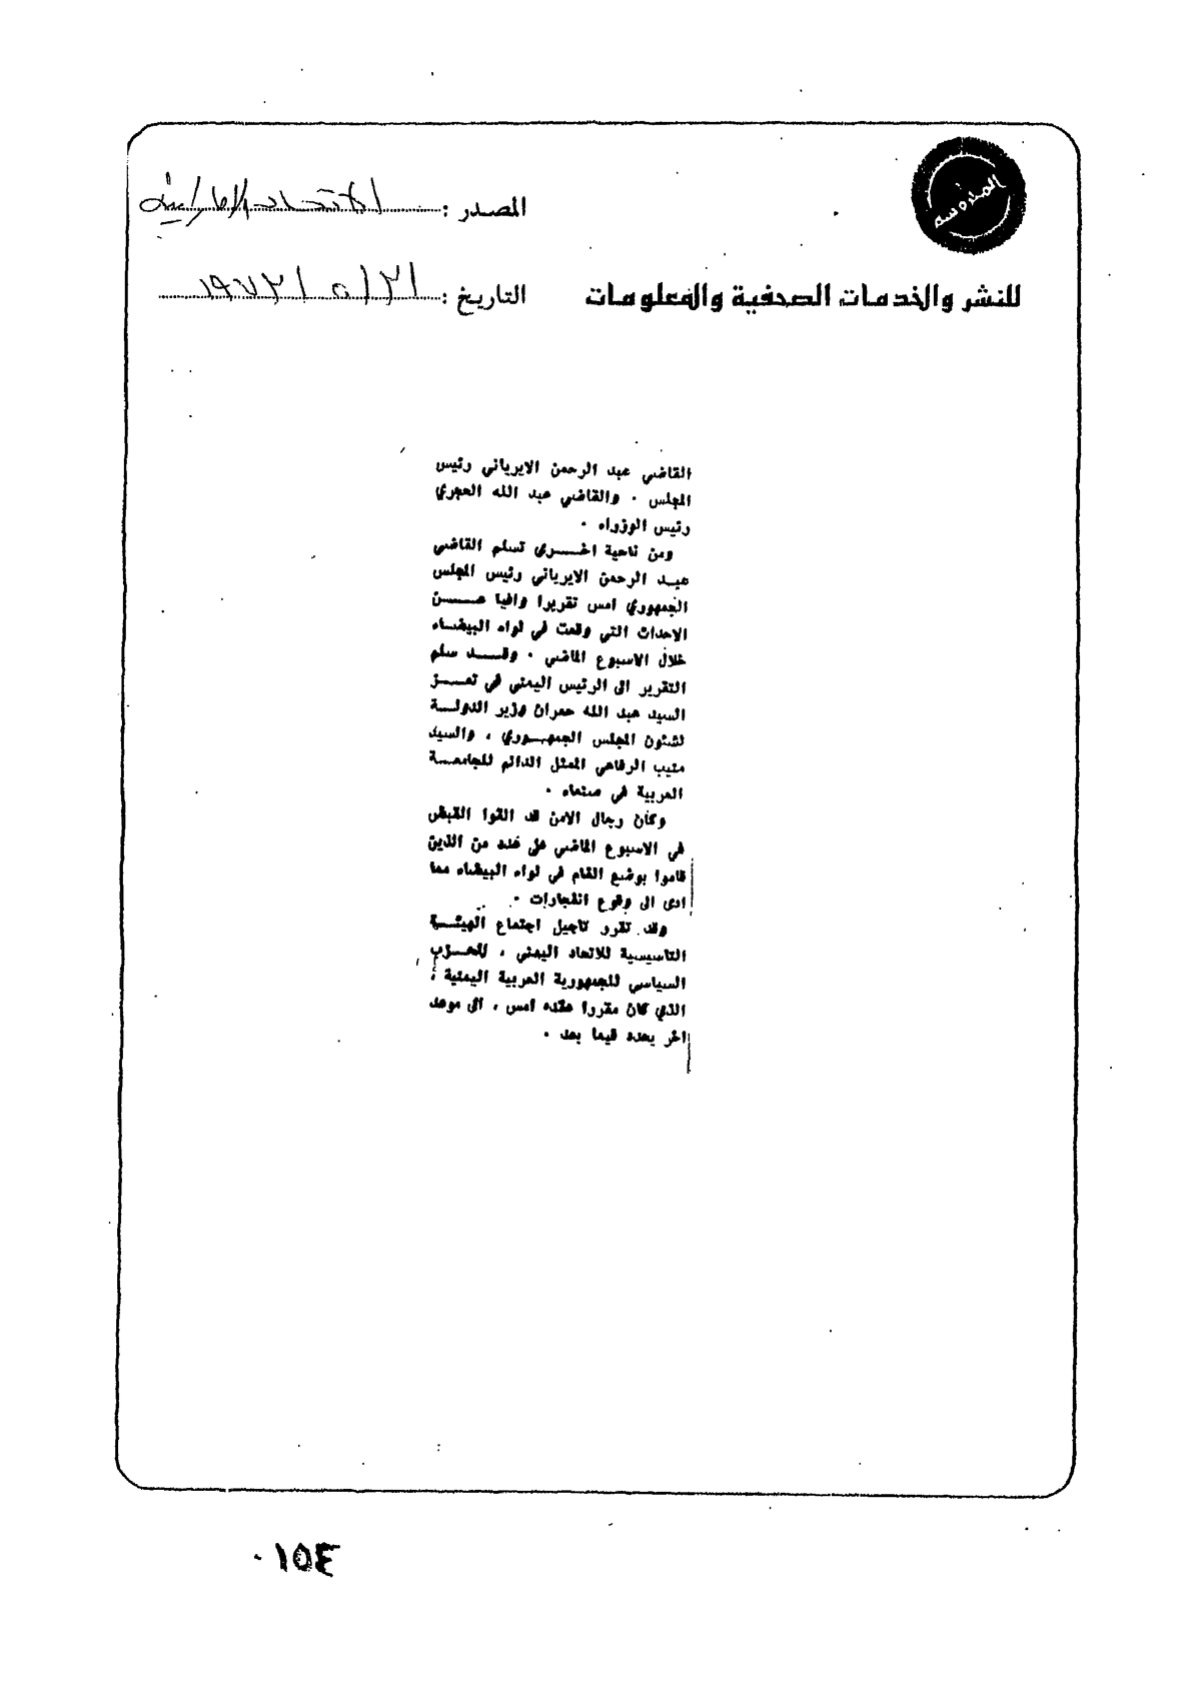 المصدر : الاتحاد الإماراتية
للنشر والخدمات الصحفية والمعلومات
التاريخ : ٢١ / ٥ / ١٩٧٣
القاضي عبد الرحمن الايرياني رئيس
المجلس . والقاضي عبد الله الحجري
رئيس الوزراء .
ومن ناحية اخـــرى تسلم القاضي
عبـد الرحمن الايرياني رئيس المجلس
الجمهوري امس تقريرا وافيا عـــن
الاحداث التي وقعت في لواء البيضـاء
خلال الاسبوع الماضي . وقـــد سلم
التقرير الى الرئيس اليمني في تعـــز
السيد عبد الله حمران وزير الدولـــة
لشئون المجلس الجمهـوري ، والسيد
متيب الرفاعي الممثل الدائم للجامعـــة
العربية في صنعاء .
وكان رجال الامن قد القوا القبض
في الاسبوع الماضي على عدد من الذين
قاموا بوضع الغام في لواء البيضاء مما
ادى الى وقوع انفجارات .
وقد تقرر تاجيل اجتماع الهيئـــة
التاسيسية للاتحاد اليمني ، الحـزب
السياسي للجمهورية العربية اليمنية ،
الذي كان مقررا عقده امس ، الى موعد
اخر يحدد فيما بعد .
١٥٤